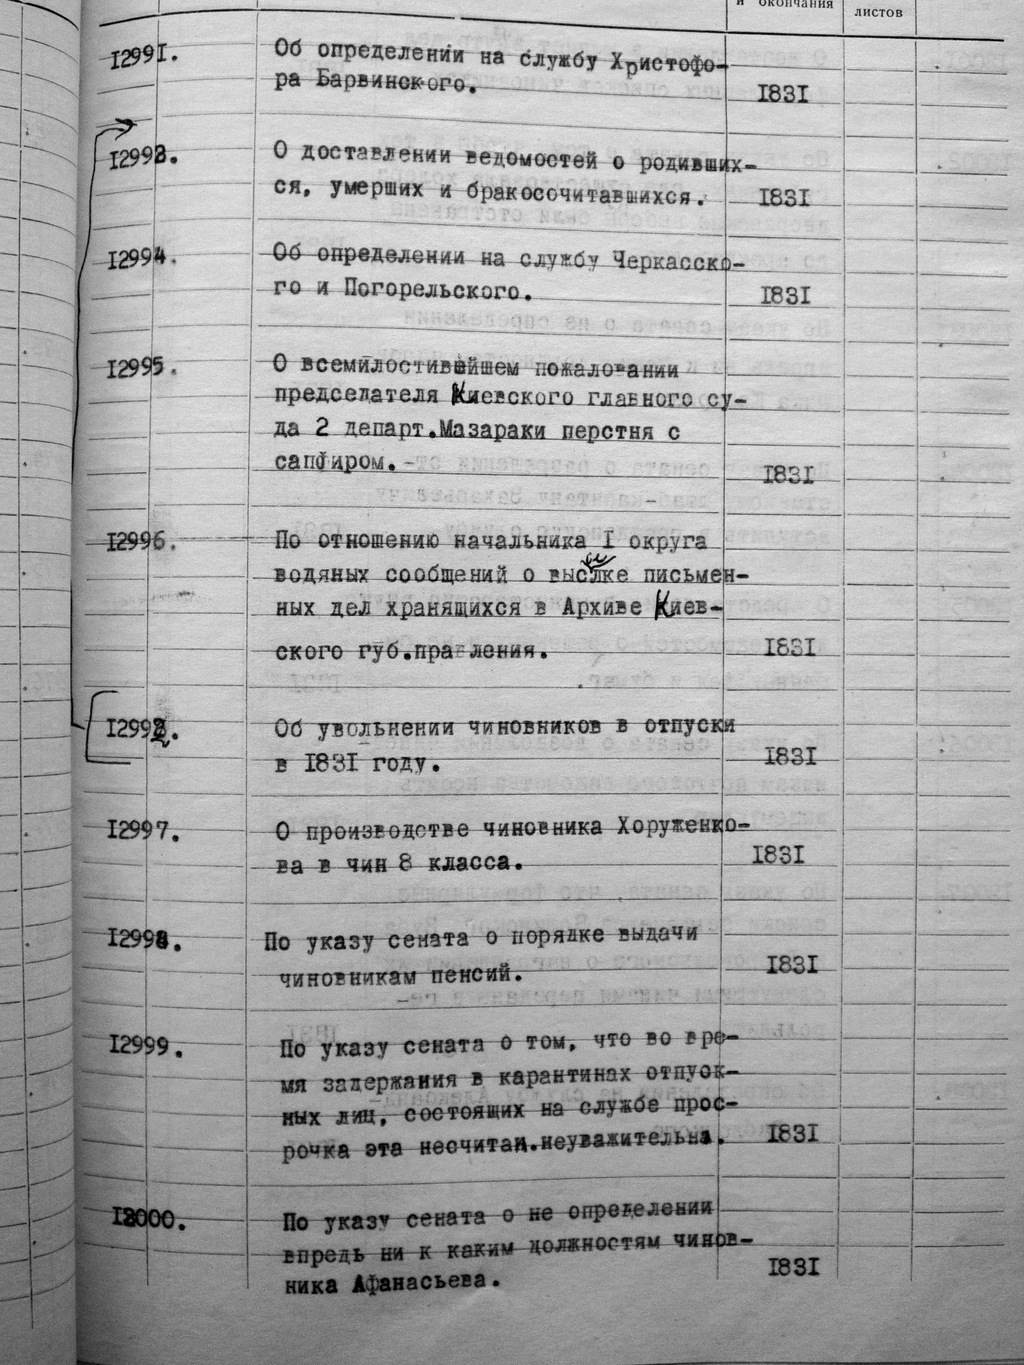 и окончания
листов
12991. Об определении на службу Христофо-
ра Барвинского. 1831
12993. О доставлении ведомостей о родивших-
ся, умерших и бракосочитавшихся. 1831
12994. Об определении на службу Черкасско-
го и Погорельского. 1831
12995. О всемилостивейшем пожаловании
председателя Киевского главного су-
да 2 департ.Мазараки перстня с
сапфиром. 1831
12996. По отношению начальника I округа
водяных сообщений о высылке письмен-
ных дел хранящихся в Архиве Киев-
ского губ.правления. 1831
12992. Об увольнении чиновников в отпуски
в 1831 году. 1831
12997. О производстве чиновника Хоруженко-
ва в чин 8 класса. 1831
12998. По указу сената о порядке выдачи
чиновникам пенсий. 1831
12999. По указу сената о том, что во вре-
мя задержания в карантинах отпуск-
ных лиц, состоящих на службе прос-
рочка эта несчитал.неуважительна. 1831
13000. По указу сената о не определении
впредь ни к каким должностям чинов-
ника Афанасьева. 1831